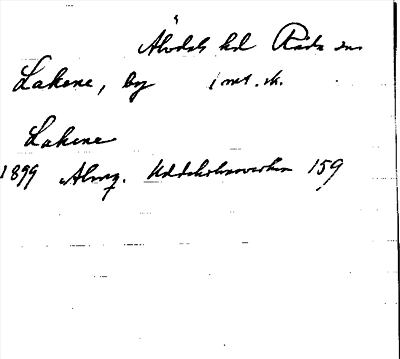 Älvdals hd Råda sn
Lakene, by i mt. sk.
Lakene
1899 Almq. Uddeholmsverken 159